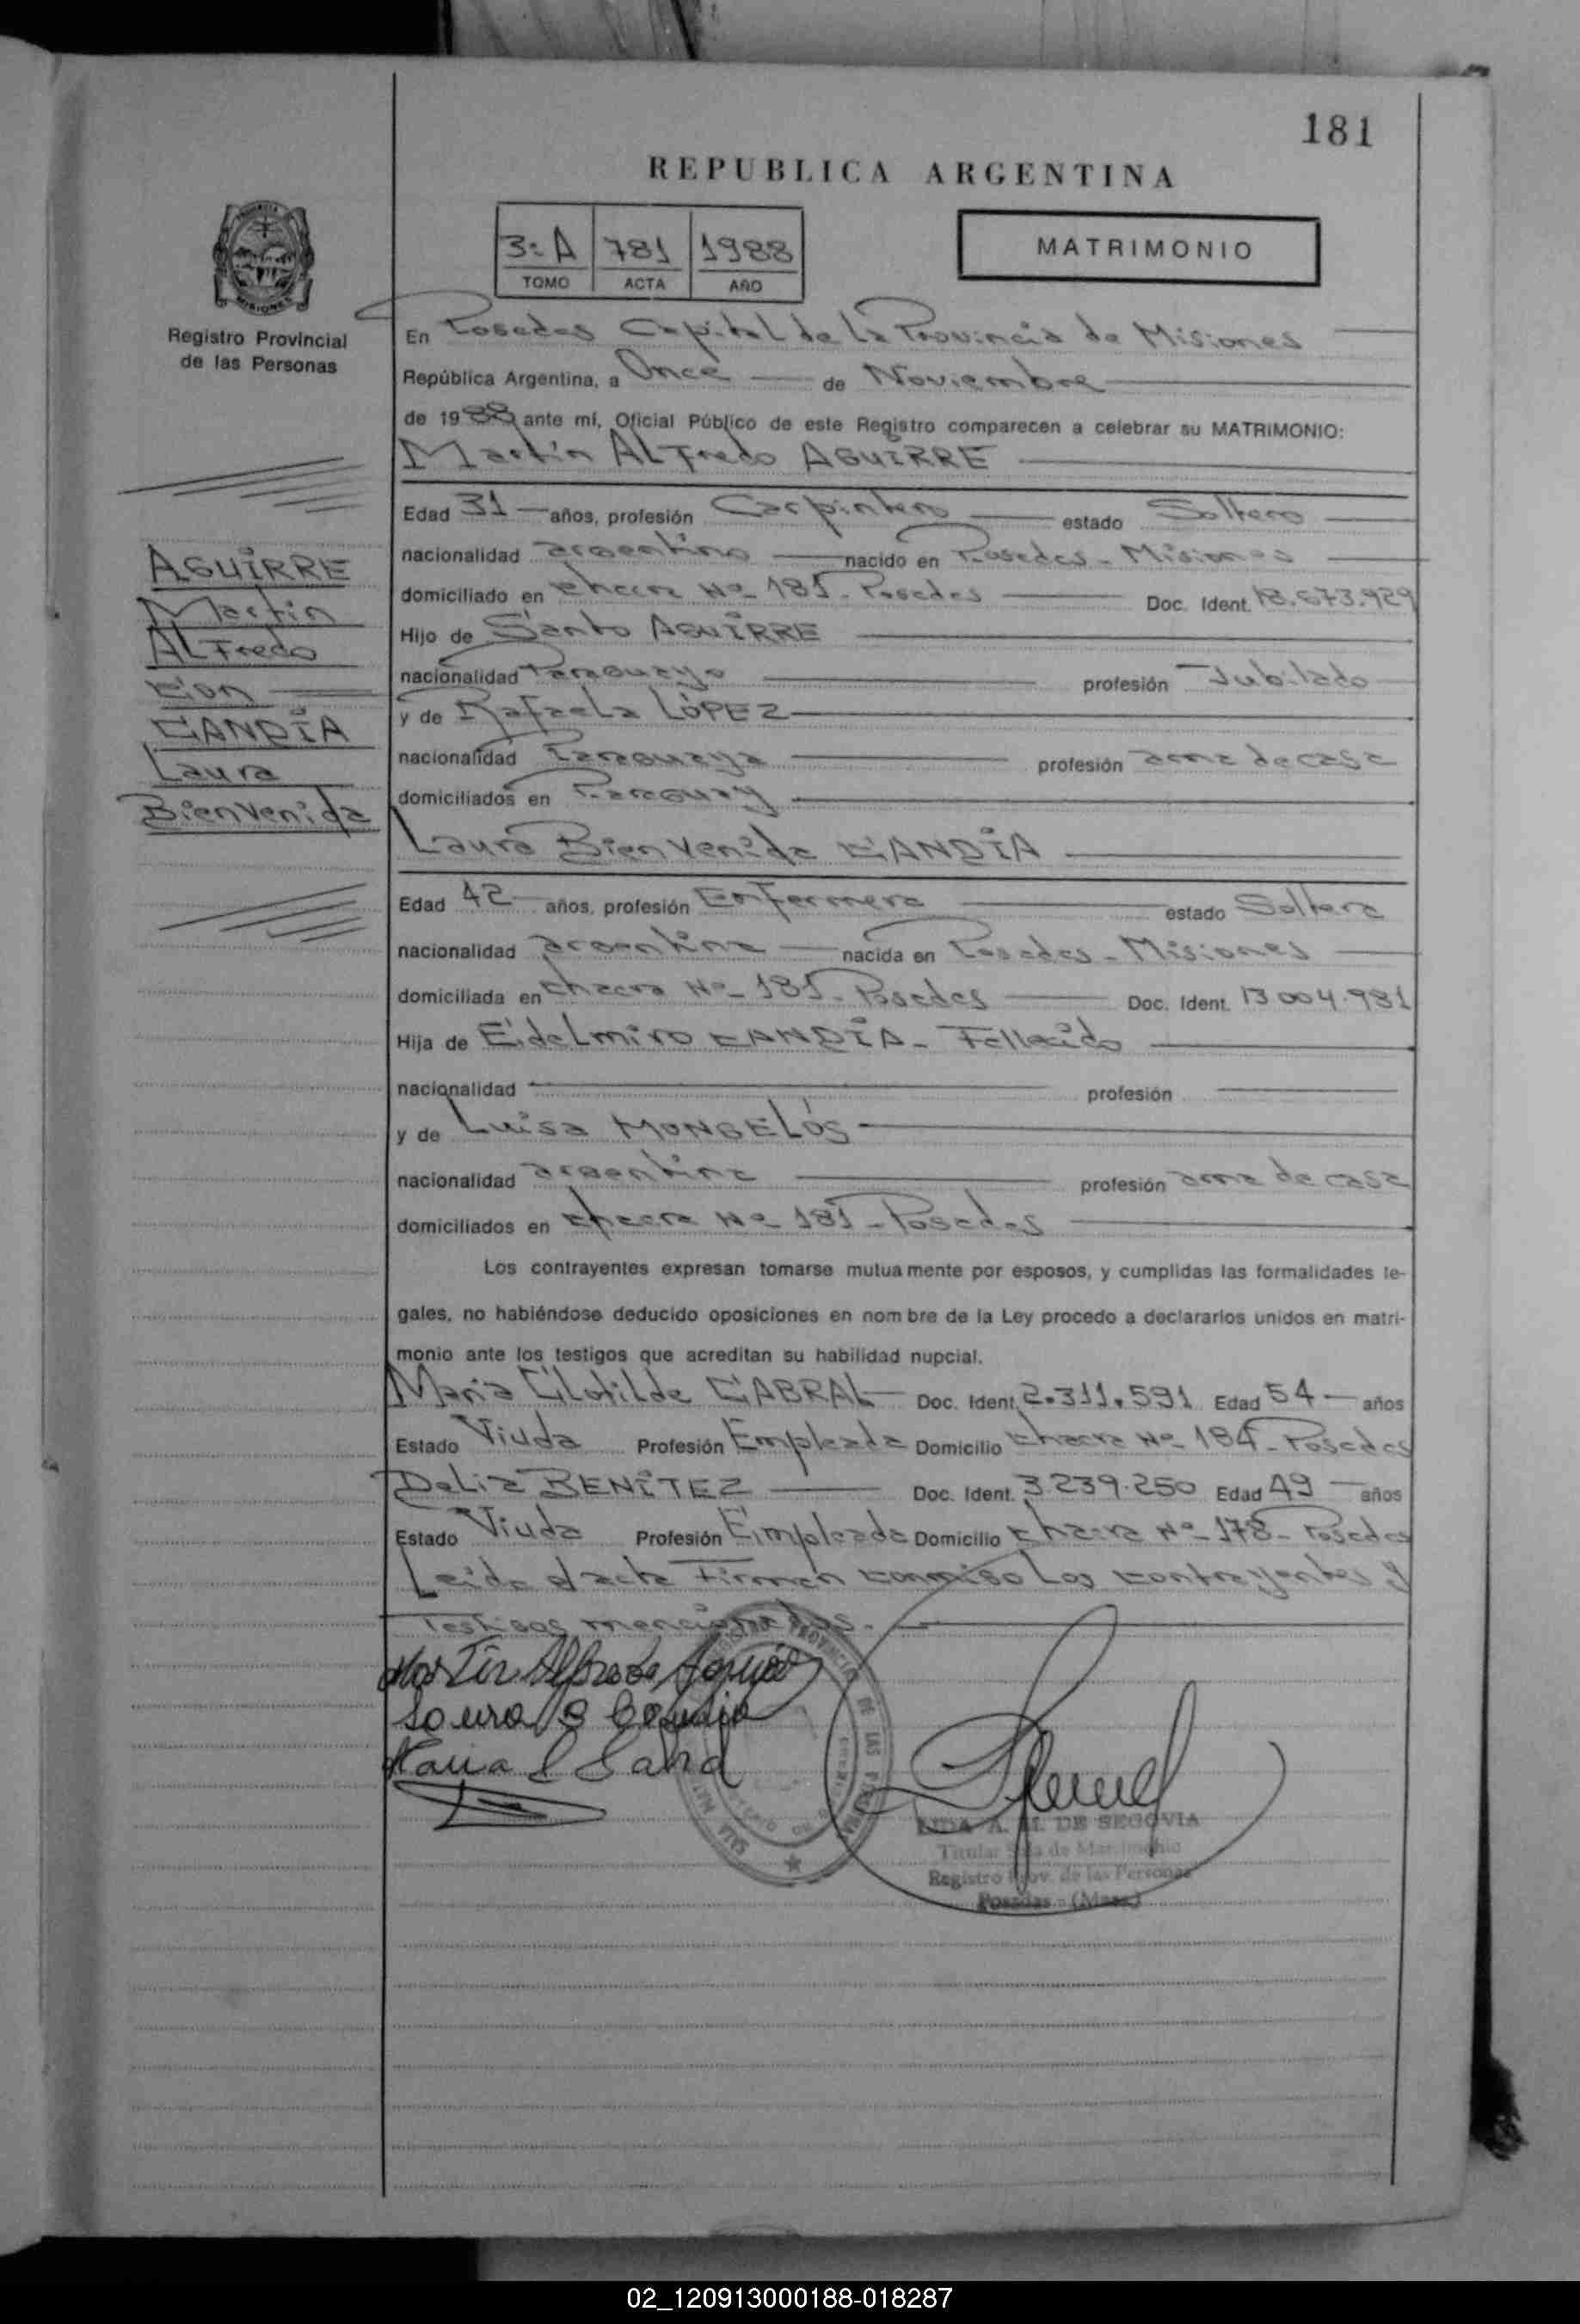 181
REPUBLICA ARGENTINA
3:A 781 1988
TOMO ACTA AÑO
MATRIMONIO
Registro Provincial
de las Personas
En Posadas Capital de la Provincia de Misiones
República Argentina, a Once de Noviembre
de 1988 ante mí, Oficial Público de este Registro comparecen a celebrar su MATRIMONIO:
Martín ALFredo AGUIRRE
Edad 31 años, profesión Carpintero estado Soltero
nacionalidad argentino nacido en Posadas - Misiones
domiciliado en chacra Nº 181 - Posadas Doc. Ident. 18.673.929
Hijo de Santo AGUIRRE
nacionalidad Paraguayo profesión Jubilado
y de Rafaela LÓPEZ
nacionalidad Paraguaya profesión ama de casa
domiciliados en Paraguay
Laura Bienvenida CANDIA
Edad 42 años, profesión Enfermera estado Soltera
nacionalidad argentina nacida en Posadas - Misiones
domiciliada en chacra Nº 181 - Posadas Doc. Ident. 13.004.981
Hija de Edelmiro CANDIA - Fallecido
nacionalidad profesión
y de Luisa MONGELÓS
nacionalidad argentina profesión ama de casa
domiciliados en chacra Nº 181 - Posadas
Los contrayentes expresan tomarse mutuamente por esposos, y cumplidas las formalidades le-
gales, no habiéndose deducido oposiciones en nombre de la Ley procedo a declararlos unidos en matri-
monio ante los testigos que acreditan su habilidad nupcial.
María Clotilde CABRAL Doc. Ident. 2.311.591 Edad 54 años
Estado Viuda Profesión Empleada Domicilio chacra Nº 184 - Posadas
Delia BENITEZ Doc. Ident. 3.239.250 Edad 49 años
Estado Viuda Profesión Empleada Domicilio chacra Nº 178 - Posadas
Leída el acta Firman conmigo los contrayentes y
Testigos mencionados.
AGUIRRE
Martín
ALFredo
con
CANDIA
Laura
Bienvenida
Martín Alfredo Aguirre
Laura B Candia
Maria C Cabral
LIDA A. M. DE SEGOVIA
Titular Sala de Matrimonio
Registro Prov. de las Personas
Posadas - (Mnes)
02_120913000188-018287